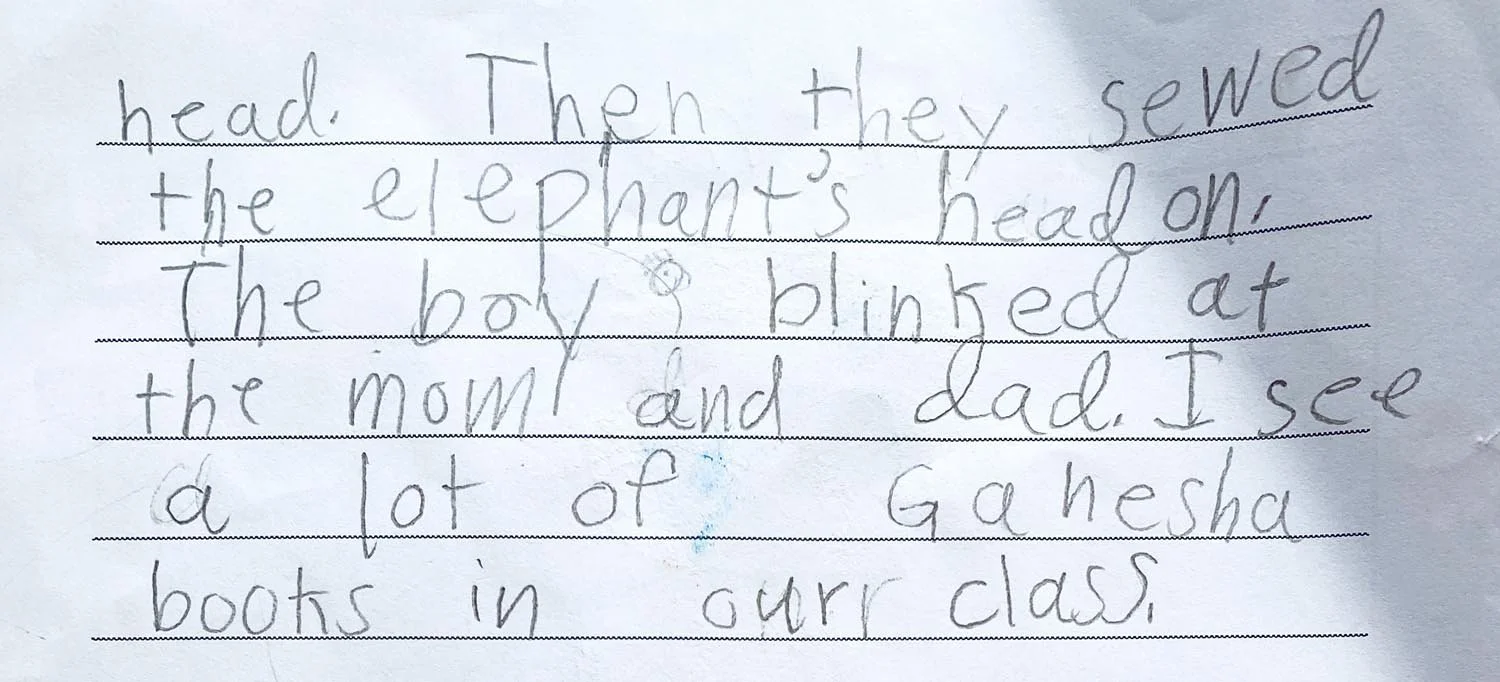 head. Then they sewed
the elephant's head on.
The boy blinked at
the mom and dad. I see
a lot of Ganesha
books in ourr class.